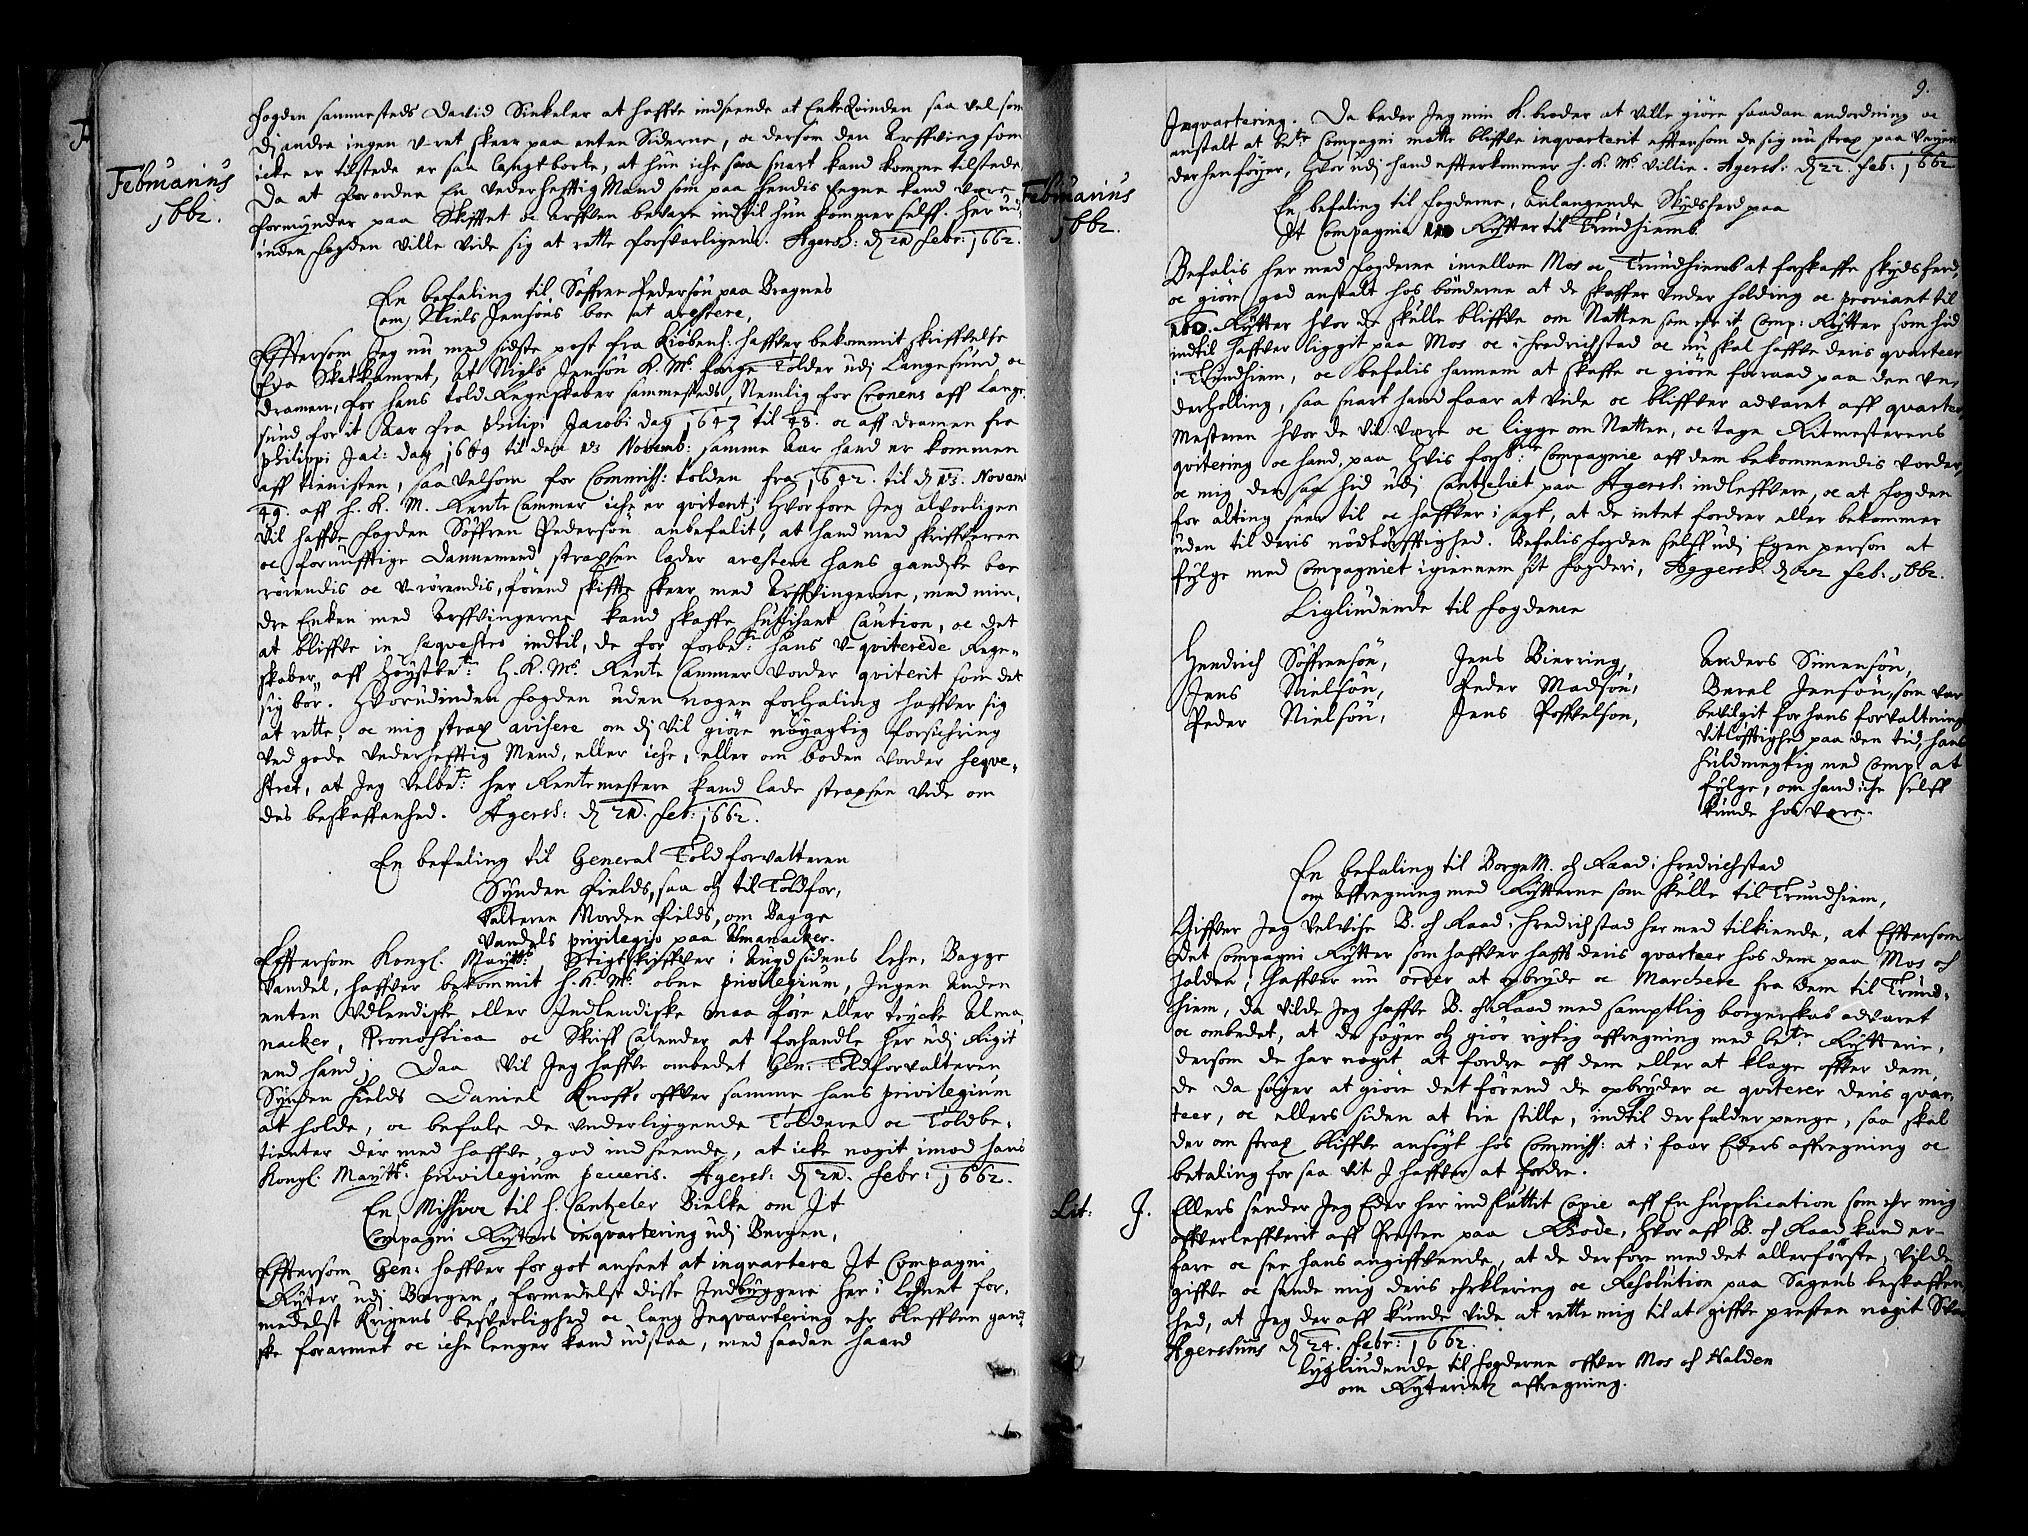 Februarius
1662.
fogden sammesteds David Sinkeler at haffve indseende at Enke Qvinden saa vel som
di andre ingen u-ret skeer paa enten Siderne, oc dersom den Arffving som
icke er tilstede er saa langt borte, at hun iche saa snart kand komme tilstede
Da at forordne En vederhefftig Mand som paa hendis vegne kand være
formynder paa Skifftet oc Arffven bevare indtil hun kommer selff. her ud
inden fogden ville vide sig at rette forsvarligens. Agersh: d 21 febr: 1662.
En befaling til Söffren Pedersön paa Bragnes
om Niels Jensöns boe at arestere,
Effter som Jeg nu med sidste post fra Kiøbenh: haffver bekommit skriffvelse
fra Skatkamret, at Niels Jensön K. Ms. forige Tolder udi Langesund oc
Dramen, for hans told Regnskaber sammesteds, Nemlig for Cronens aff Lange
sund for it Aar fra Philipi Jacobi dag 1647 til 48. oc aff Dramen fra
Philippi Jac: dag 1649 til den 13 Novemb: samme Aar hand er kommen
aff tienisten, saa velsom for Commiss: tolden fra 1642. til d 13. Novem
49. aff H. K. M. Rente Cammer iche er qvitert, Hvorfore Jeg alvorligen
vil haffve fogden Söffren Pedersön anbefalit, at hand med skriffveren
oc fornufftige Dannemend strapsen lader arestere hans gandske boe
rörendis oc u-rörendis, förend skiffte skeer med Arffvingerne, med min,
dre Enken med Arffvingerne kand skaffe suffisant Caution, oc det
at bliffve in seqvestro indtil, de for forbe.t: hans u-qviterede Regn-
skaber aff höystbe.t: H. K. Ms. Rente Cammer vorder qviterit som det
sig bör. Hvorudinden fogden uden nogen forhaling haffver sig
at rette, oc mig strax avisere om di vil giöre nöyagtig forsichring
ved gode vederhefftig Mend, eller iche, eller om boden vorder seqve-
stret, at Jeg velbe.t: her Rentemestere kand lade strapsen vide om
des beskaffenhed. Agersh: d 21. feb: 1662.
En befaling til General Toldforvalteren
Synden fields, saa och til Toldfor,
valteren Norden fields, om Bagge
Vandels privilegio paa Almanacker.
Effter som Kongl. Maytts. Stigtskriffver i Augdsidens Lehn, Bagge
Vandel, haffver bekommit H. K. Ms. obne privilegium, Ingen Anden
enten Udlendiske eller Indlendiske maa före eller trycke Alma
nacker, Pronostica oc Skriff Calender at forhandle her udi Rigit
end hand, Daa vil Jeg haffve ombedet Gen. Toldforvalteren
Synden fields Daniel Knoff, offver samme hans privilegium
at holde, oc befale de underliggende Toldere oc Toldbe-
tienter der med haffve, god indseende, at icke nogit imod hans
Kongl: Maytts. privilegium peceris. Agersh: d 21. febr: 1662.
En Missive til h. Cantzeler Bielke om It
Compagni Rytters inqvartering udi Bergen,
Effter som Gen: haffver for got anseet at inqvartere It Compagni
Ryter udi Bergen, formedelst disse Indbyggere her i Lehnet for-
medelst Krigens besverlighed oc lang Inqvartering ehr bleffven gand-
ske forarmet oc iche lenger kand udstaa, med saadan haard
9.
Februarius
1662.
Inqvartering. Da beder Jeg min K. broder at ville giöre saadan andordning oc
anstalt at be.te Compagni motte bliffve inqvarterit efftersom de sig nu strax paa Vejen
derhen föyer, Hvor udi hand effterkommer H. K. Ms. Villie. Agersh: d 22. feb: 1662
En befaling til fogderne, Anlangende Skydsferd paa
It Compagnie Rytter til Trundhiemb.
Befalis her med fogderne imellom Mos oc Trundhiemb at forskaffe skydsferd,
oc giöre god anstalt hos bönderne at de skaffer underholding oc proviant til
100. Rytter hvor de skulle bliffve om Natten som ehr it Comp: Rytter som hid
indtil haffver liggit paa Mos oc i Fredrichstad oc nu skal haffve deris qvarteer
i Trundhiem, oc befalis hannem at skaffe oc giöre forraad paa den un-
derholling, saa snart hand faar at vide oc bliffver advaret aff qvarteer
Mesteren hvor de vil være oc ligge om Natten, oc tage Ritmesterens
qvitering oc hand, paa hvis forbe.te Compagnie aff dem bekommendis vorder,
oc mig den saa hid udi Cantzeliet paa Agersh. indleffvere, oc at fogden
for alting seer til oc haffver i agt, at de intet fordrer eller bekommer
uden til deris nödtörfftighed. Befalis fogden selff udi Egen person at
fylge med Compagniet igiennem sit fogderi, Aggersh. d 22 feb. 1662.
Liglindende til fogderne
Hendrich Söffrensön,
Jens Nielsön,
Peder Nielsön,
Jens Bierring,
Peder Madsön,
Jens Poffvelson,
Anders Simensön,
Berel Jensön, som var
bevilgit for hans forvaltnings
vitløfftighed paa den tid, hans
fuldmegtig med Comp: at
fylge, om hand iche selff
kunde hos være.
En befaling til BorgeM. och Raad i Fredrichstad
om Affregning med Rytterne som skulle til Trundhiem,
Giffver Jeg velvise B. och Raad i Fredrichstad her med tilkiende, at Efftersom
Det Compagni Rytter som haffver hafft deris qvarteer hos dem paa Mos och
Halden, haffver nu order at opbryde oc Marchere fra dem til Trund-
hiem, da vilde Jeg haffve B. och Raad med samptlig borgerskab advaret
oc ombedet, at de söger och giör rigtig affregning med be.te Rytterie,
dersom de har nogit at fordre aff dem eller at klage offver dem,
de da söger at giöre det förend de opbryder oc qviterer deris qvar-
teer, oc ellers siden at tie stille, indtil der falder penge, saa skal
der om strax bliffve ansögt hos Commiss: at i faar Eders affregning oc
betaling for saa vit I haffver at fordre.
Lit: J. Ellers sender Jeg Eder her indsluttit Copie aff En Supplication som ehr mig
offverleffverit aff Presten paa Rode, Hvor aff B. och Raad kand er-
fare oc see hans angiffvende, at de derfore med det allerförste, vilde
giffve oc sende mig deris erklering oc Resolution paa Sagens beskaffen
hed, at Jeg der aff kunde vide at rette mig til at giffve presten nogit Svar
Agershuus d 24. Febr: 1662.
Lyglindende til fogderne offver Mos och Halden
om Ryteriets affregning.